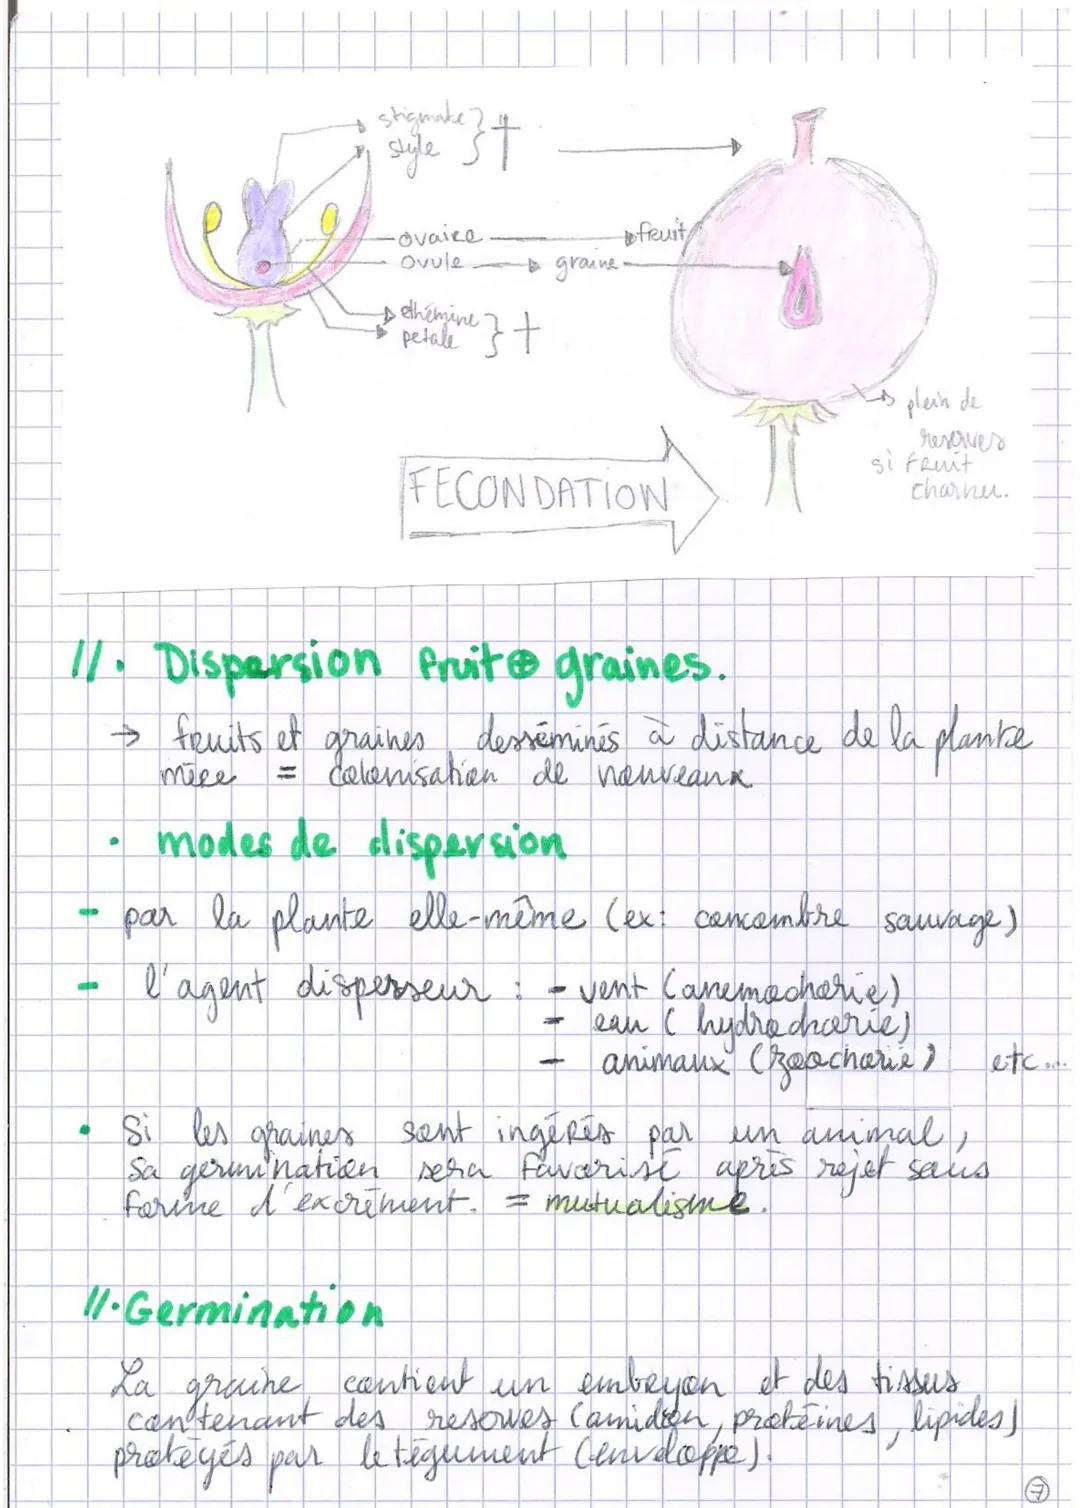 stigmate } †
style
ovaire → fruit
ovule → graine
éthémine } †
petale
plein de
reserves
si fruit
charnu.
FECONDATION
//. Dispersion fruit ⊕ graines.
→ fruits et graines desséminés à distance de la plante
mère = colonisation de nouveaux
• modes de dispersion
- par la plante elle-même (ex: concombre sauvage)
- l'agent disperseur : - vent (anemochorie)
- eau (hydrochorie)
- animaux (zoochorie) etc...
• Si les graines sont ingérés par un animal,
sa germination sera favorisé après rejet sous
forme d'excrément. = mutualisme.
//. Germination
La graine contient un embryon et des tissus
contenant des reserves (amidon, protéines, lipides)
protégés par le tégument (enveloppe).
7